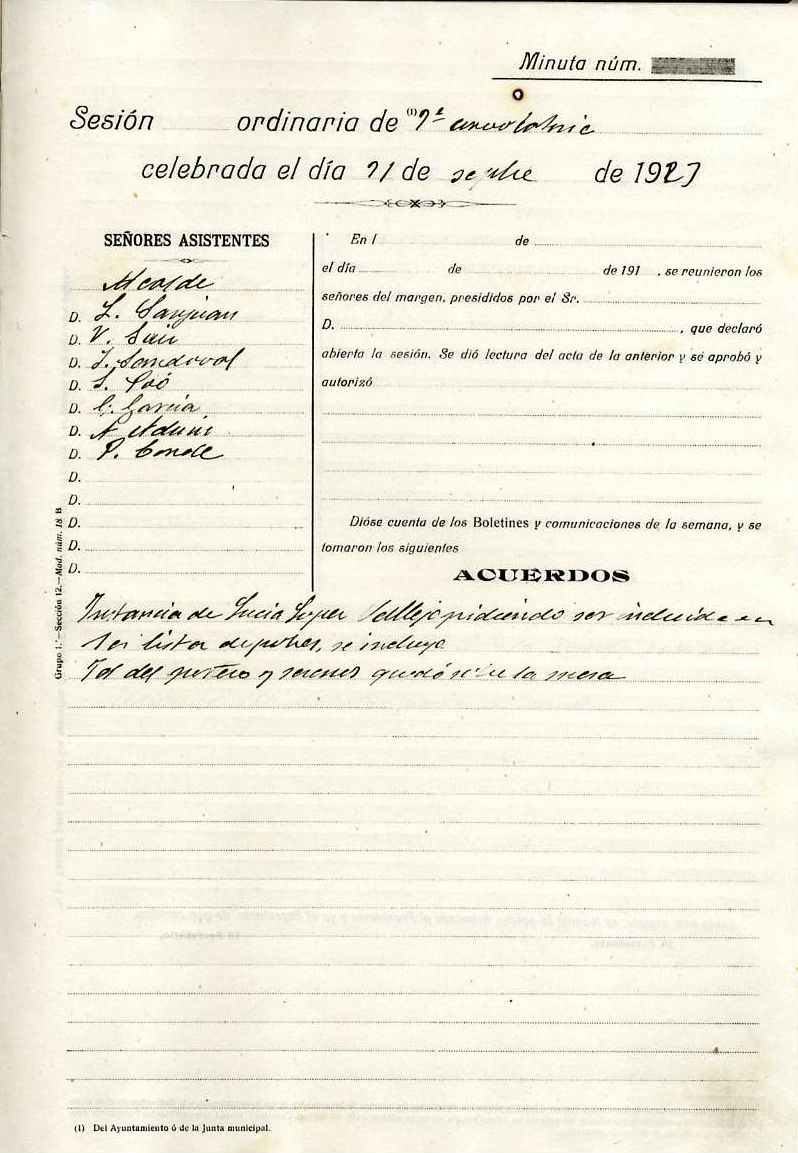 Minuta núm.
Sesión ordinaria de (1) 2ª convocatoria
celebrada el día 21 de septbe de 1927
SEÑORES ASISTENTES
Alcalde
D. L. Sanjuan
D. V. Saiz
D. J. Sandoval
D. S. Poó
D. C. García
D. A.
D. P. Conde
D.
D.
D.
D.
D.
En l de
el día de de 191 , se reunieron los
señores del margen, presididos por el Sr.
D. , que declaró
abierta la sesión. Se dió lectura del acta de la anterior y se aprobó y
autorizó
Dióse cuenta de los Boletines y comunicaciones de la semana, y se
tomaron los siguientes
ACUERDOS
Instancia de Lucia Lopez Vallejo pidiendo ser incluida en
las listas de pobres, se incluya
Id del portero y serenos quedó sobre la mesa
Grupo 1.º—Sección 12.—Mod. núm. 18 B
(1) Del Ayuntamiento ó de la Junta municipal.